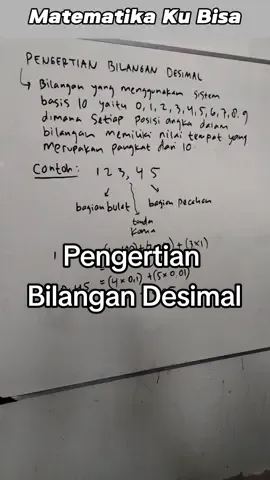 Matematika Ku Bisa
PENGERTIAN BILANGAN DESIMAL
↳ Bilangan yang menggunakan sistem
basis 10 yaitu 0, 1, 2, 3, 4, 5, 6, 7, 8, 9
dimana setiap posisi angka dalam
bilangan memiliki nilai tempat yang
merupakan pangkat dari 10.
Contoh: 1 2 3, 4 5
bagian bulat
bagian pecahan
tanda
koma
+ (3x1)
Pengertian
Bilangan Desimal
= (4 x 0,1) + (5 x 0.01)